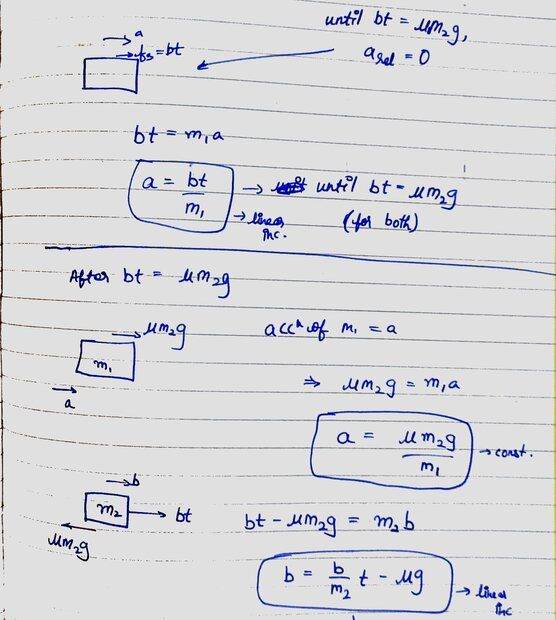 until bt = μm₂g,
a_rel = 0
a
fs = bt
bt = m₁a
a = bt/m₁ → until bt = μm₂g
→ linear inc. (for both)
After bt = μm₂g
μm₂g accⁿ of m₁ = a
m₁
a
⇒ μm₂g = m₁a
a = μm₂g/m₁ → const.
b
m₂ bt
μm₂g
bt - μm₂g = m₂b
b = b/m₂ t - μg → linear inc